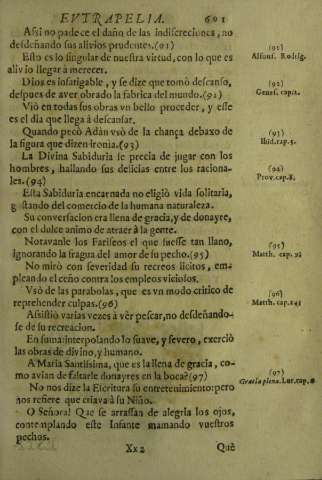 EVTRAPELIA. 601
Assi no padece el daño de las indiscreciones, no
desdeñando sus alivios prudentes.(91)
Esto es lo singular de nuestra virtud, con lo que es
alivio llegar à merecer.
Dios es infatigable, y se dize que tomò descanso,
despues de aver obrado la fabrica del mundo.(92)
Viò en todas sus obras vn bello proceder, y esse
es el dia que llega à descansar.
Quando pecò Adàn vsò de la chança debaxo de
la figura que dizen ironia.(93)
La Divina Sabiduria se precia de jugar con los
hombres, hallando sus delicias entre los raciona-
les.(94)
Esta Sabiduria encarnada no eligiò vida solitaria,
gustando del comercio de la humana naturaleza.
Su conversacion era llena de gracia, y de donayre,
con el dulce animo de atraer à la gente.
Notavanle los Fariseos el que fuesse tan llano,
ignorando la fragua del amor de su pecho.(95)
No mirò con severidad su recreos licitos, em-
pleando el ceño contra los empleos viciosos.
Vsò de las parabolas, que es vn modo critico de
reprehender culpas.(96)
Assistiò varias vezes à vèr pescar, no desdeñando-
se de su recreacion.
En suma: interpolando lo suave, y severo, exerciò
las obras de divino, y humano.
A Maria Santissima, que es la llena de gracia, co-
mo avian de faltarle donayres en la boca?(97)
No nos dize la Escritura su entretenimiento: pero
nos refiere que criava à su Niño.
O Señora! Que se arrassan de alegria los ojos,
contemplando este Infante mamando vuestros
pechos.
Xx2 Què
(91)
Alfons. Rodrig.
(92)
Genes. cap.2.
(93)
Ibid. cap.3.
(94)
Prov. cap.8.
(95)
Matth. cap.
(96)
Matth. cap.
(97)
Gratia plena. Luc. cap.